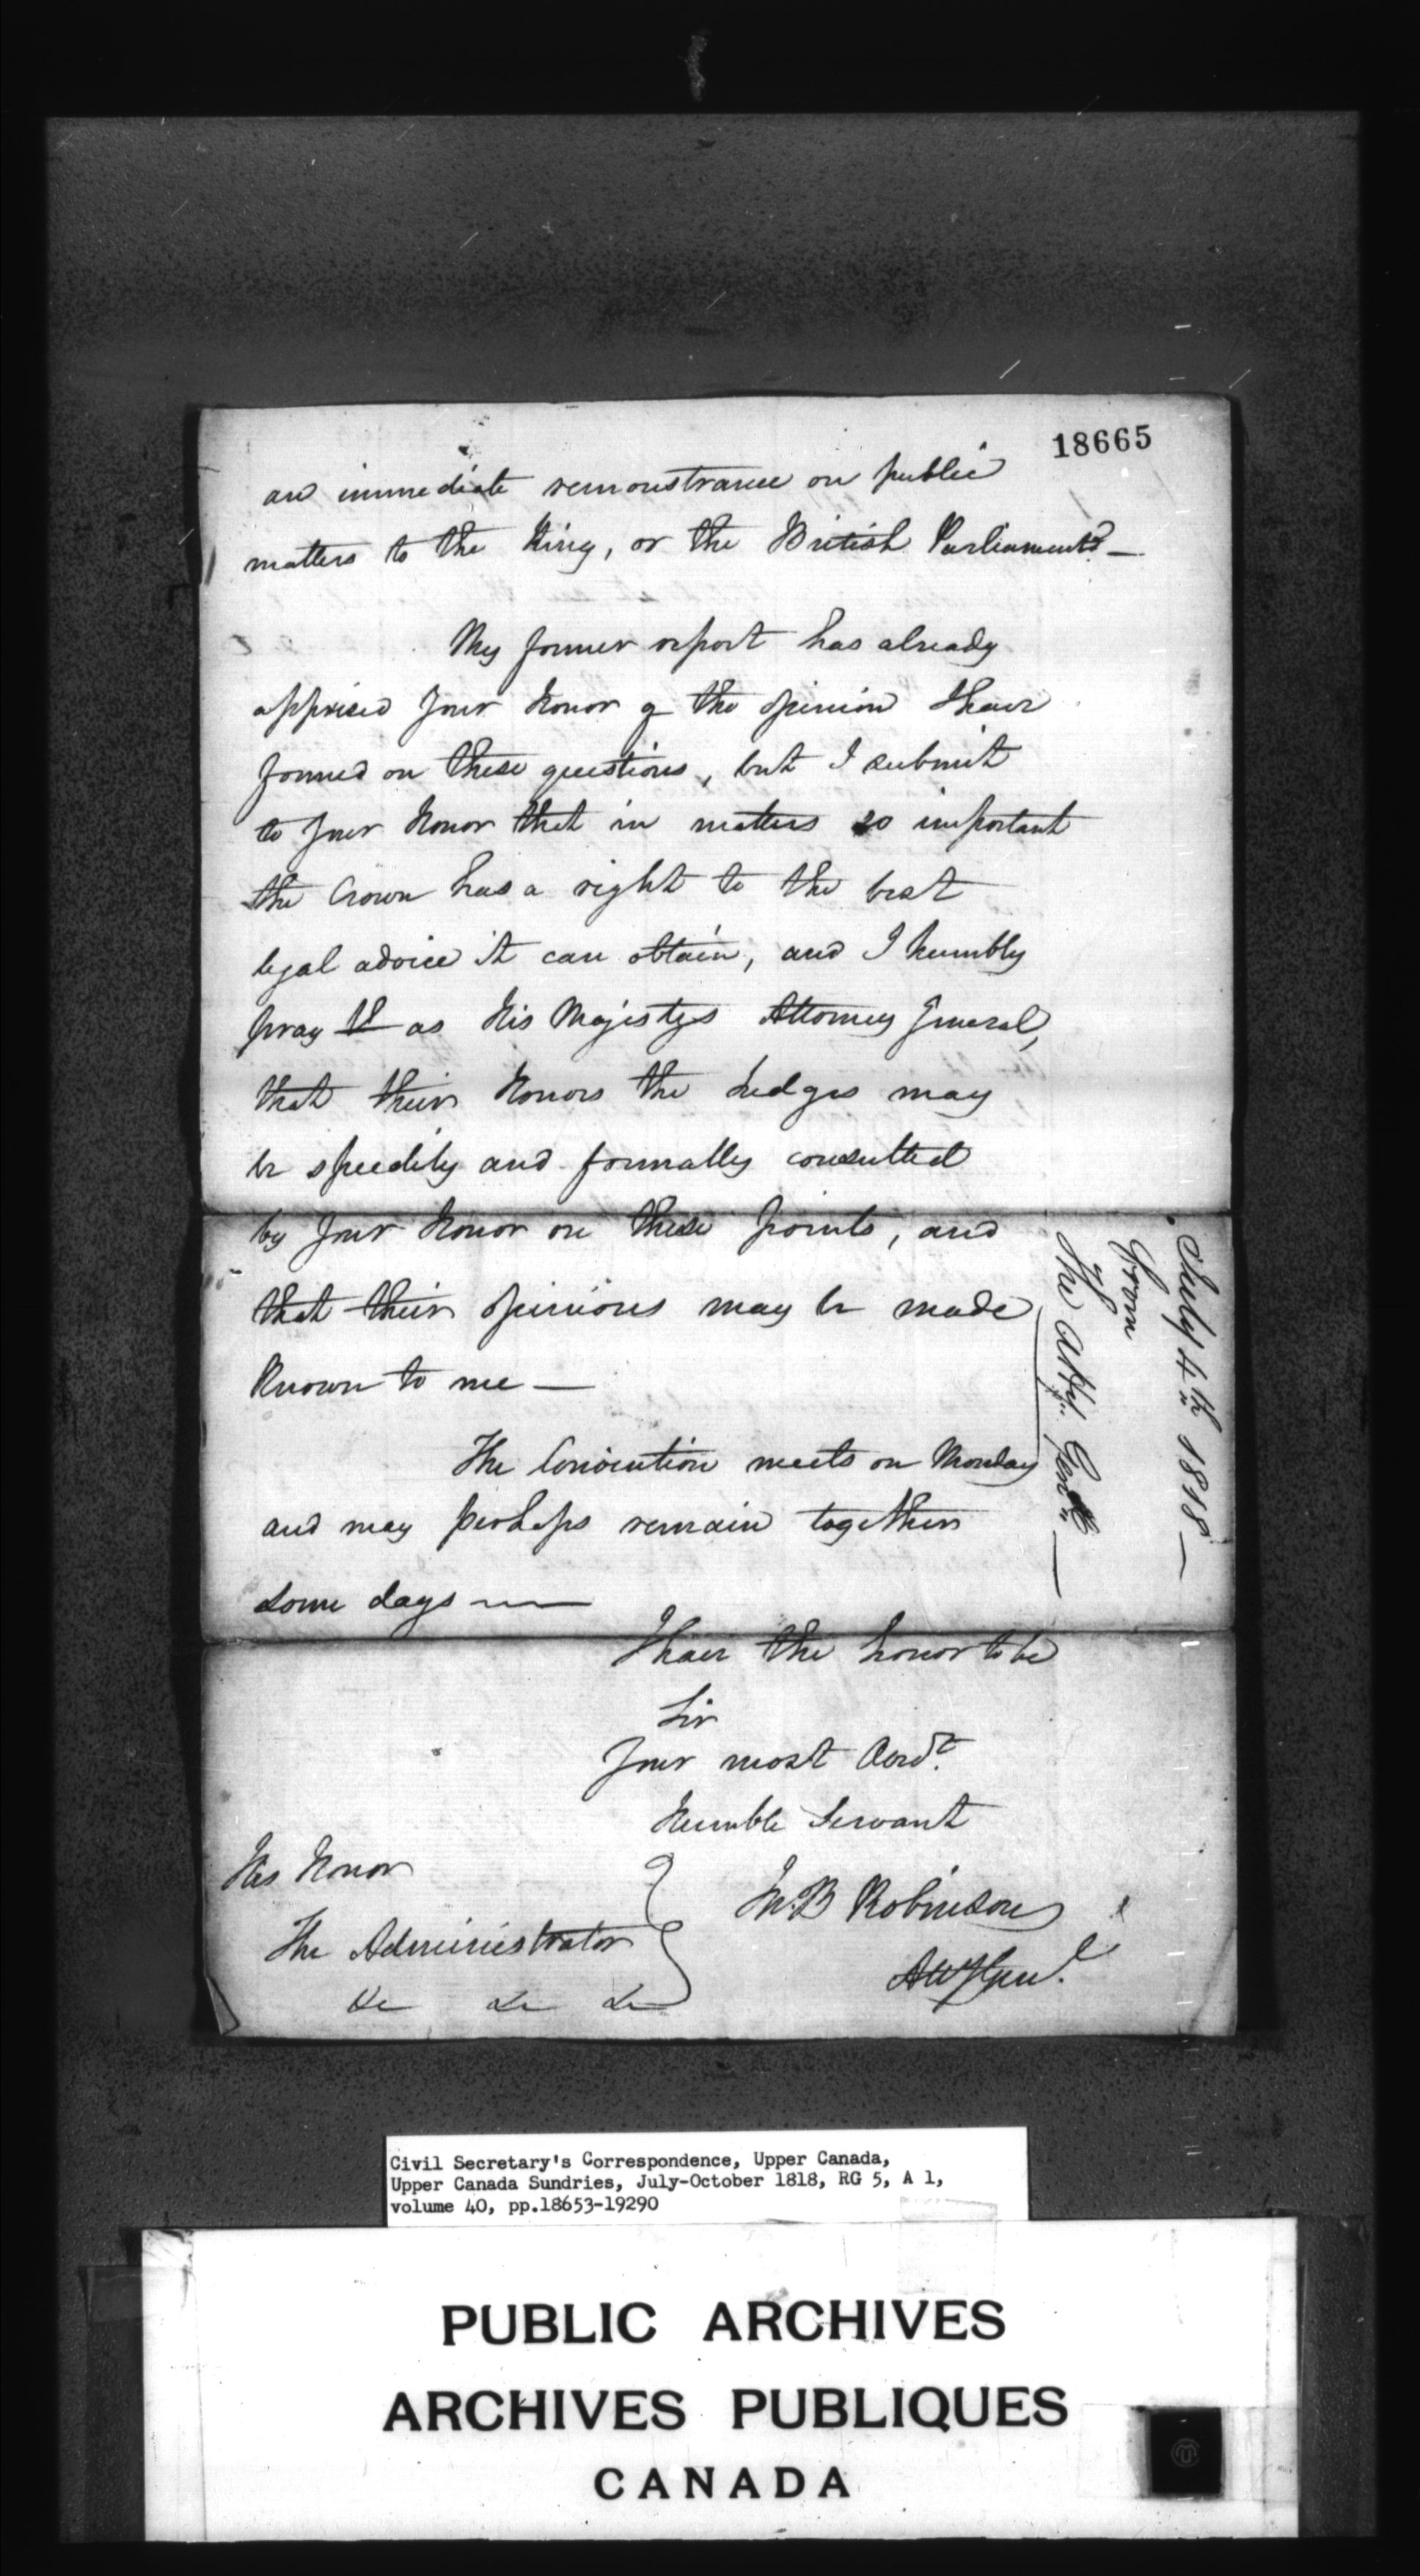 18665
an immediate remonstrance on public
matters to the King, or the British Parliament? —
My former report has already
apprised Your Honor of the opinion I have
formed on these questions, but I submit
to Your Honor that in matters so important
the Crown has a right to the best
legal advice it can obtain, and I humbly
pray as His Majestys Attorney General,
that their Honors the Judges may
be speedily and formally consulted
by Your Honor on these points, and
that their opinions may be made
known to me —
The Convention meets on Monday
and may perhaps remain together
some days —
I have the honor to be
Sir
Your most Obed.t
Humble Servant
Jno. B Robinson
Atty Genl.
His Honor
The Administrator
&c &c &c
July 4th 1818 —
From
The Atty. Genl —
Civil Secretary's Correspondence, Upper Canada,
Upper Canada Sundries, July-October 1818, RG 5, A 1,
volume 40, pp.18653-19290
PUBLIC ARCHIVES
ARCHIVES PUBLIQUES
CANADA